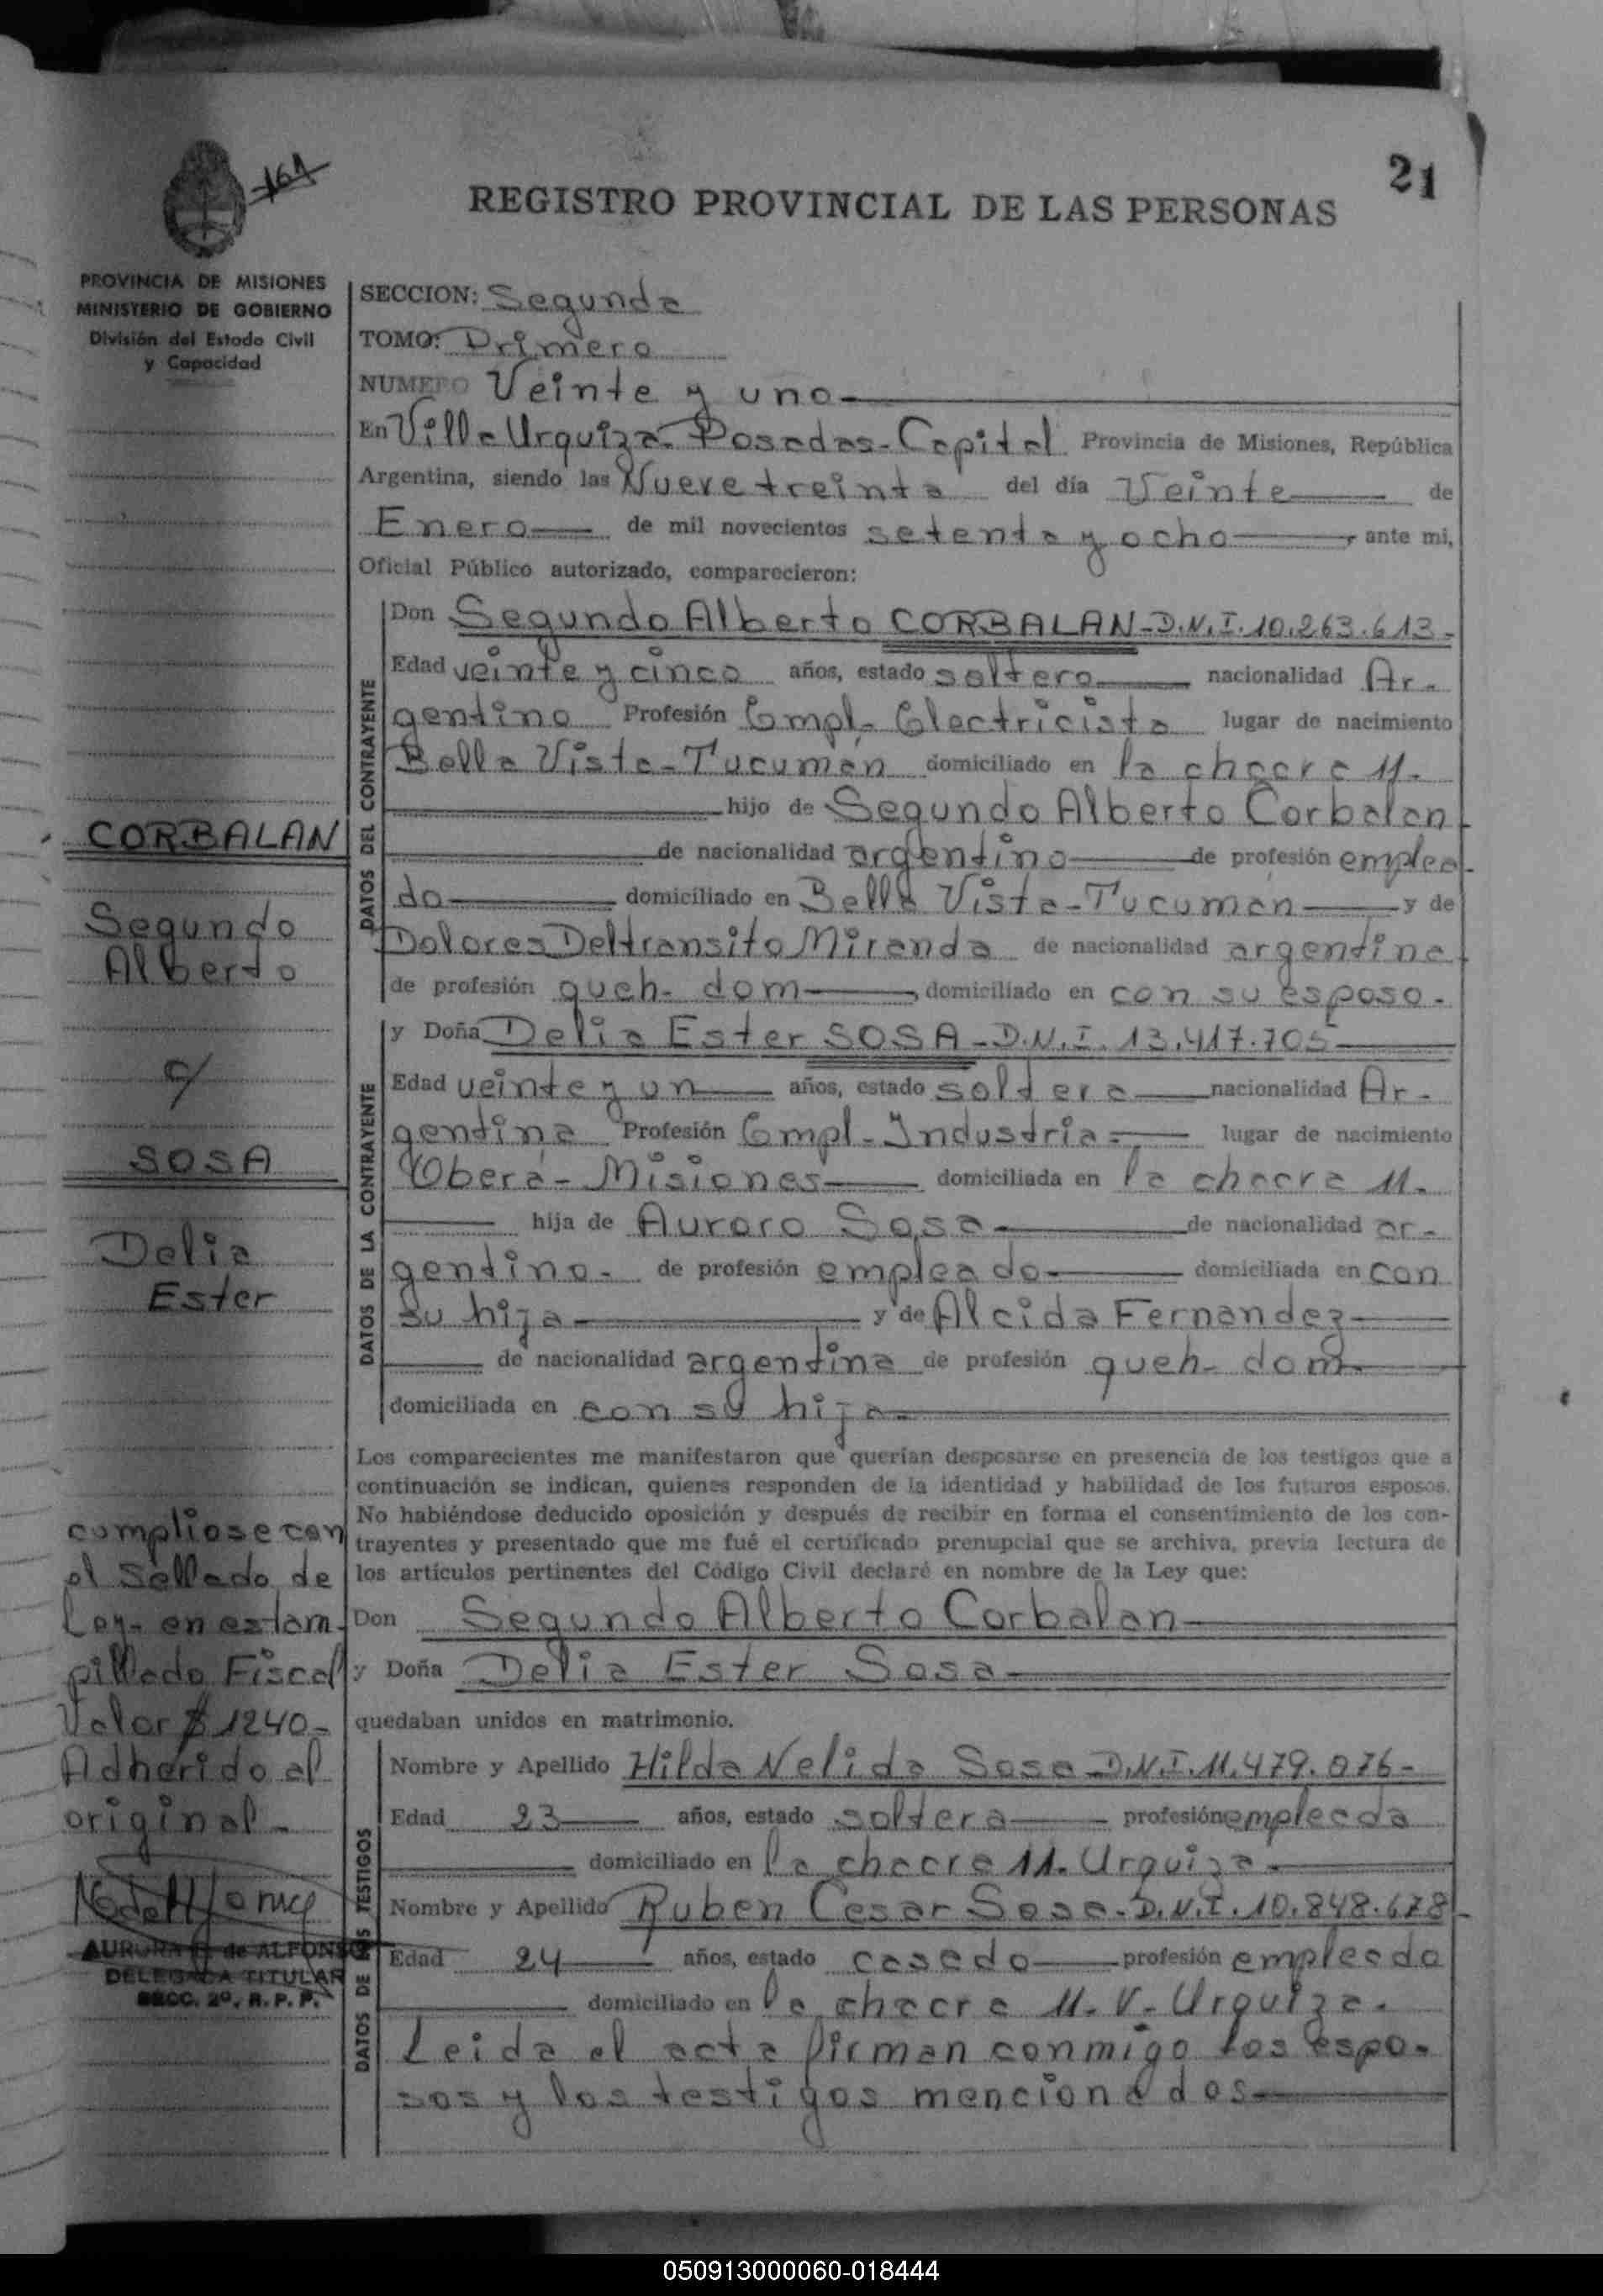 21
164
REGISTRO PROVINCIAL DE LAS PERSONAS
PROVINCIA DE MISIONES
MINISTERIO DE GOBIERNO
División del Estado Civil
y Capacidad
CORBALAN
Segundo
Alberto
c/
SOSA
Delia
Ester
cumpliose con
el Sellado de
Ley- en estam-
pillado Fiscal
Valor $ 1240-
Adherido al
original-
AURORA de ALFONSO
DELEGADA TITULAR
SECC. 2º. R. P. P.
SECCION: Segunda
TOMO: Primero
NUMERO Veinte y uno
En Villa Urquiza-Posadas-Capital Provincia de Misiones, República
Argentina, siendo las Nueve treinta del día Veinte de
Enero de mil novecientos setenta y ocho, ante mi,
Oficial Público autorizado, comparecieron:
DATOS DEL CONTRAYENTE
Don Segundo Alberto CORBALAN-D.N.I.10.263.613-
Edad veinte y cinco años, estado soltero nacionalidad Ar-
gentino Profesión Empl- Electricista lugar de nacimiento
Bella Vista-Tucumán domiciliado en la chacra 11.
hijo de Segundo Alberto Corbalan
de nacionalidad argentino de profesión emplea-
do domiciliado en Bella Vista-Tucuman y de
Dolores Deltransito Miranda de nacionalidad argentina
de profesión queh- dom, domiciliado en con su esposo.
DATOS DE LA CONTRAYENTE
y Doña Delia Ester SOSA-D.N.I. 13.417.705
Edad veinte y un años, estado soltera nacionalidad Ar-
gentina Profesión Empl-Industria lugar de nacimiento
Oberá-Misiones domiciliada en la chacra 11.
hija de Auroro Sosa de nacionalidad ar-
gentino- de profesión empleado domiciliada en con
su hija y de Alcida Fernandez
de nacionalidad argentina de profesión queh- dom.
domiciliada en con su hija.
Los comparecientes me manifestaron que querían desposarse en presencia de los testigos que a
continuación se indican, quienes responden de la identidad y habilidad de los futuros esposos.
No habiéndose deducido oposición y después de recibir en forma el consentimiento de los con-
trayentes y presentado que me fué el certificado prenupcial que se archiva, previa lectura de
los artículos pertinentes del Código Civil declaré en nombre de la Ley que:
Don Segundo Alberto Corbalan
y Doña Delia Ester Sosa
quedaban unidos en matrimonio.
DATOS DE LOS TESTIGOS
Nombre y Apellido Hilda Nelida Sosa D.N.I.11.479.076-
Edad 23 años, estado soltera profesión empleada
domiciliado en la chacra 11. Urquiza.
Nombre y Apellido Ruben Cesar Sosa-D.N.I.10.848.678-
Edad 24 años, estado casado profesión empleado
domiciliado en la chacra 11. V. Urquiza.
Leida el acta firman conmigo los espo-
sos y los testigos mencionados
050913000060-018444